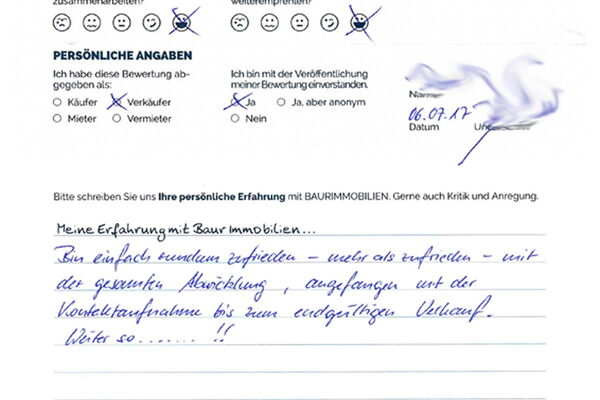 zusammenarbeiten?
weiterempfehlen?
PERSÖNLICHE ANGABEN
Ich habe diese Bewertung ab-
gegeben als:
Käufer Verkäufer
Mieter Vermieter
Ich bin mit der Veröffentlichung
meiner Bewertung einverstanden.
Ja Ja, aber anonym
Nein
Name
06.07.17
Datum
Bitte schreiben Sie uns Ihre persönliche Erfahrung mit BAURIMMOBILIEN. Gerne auch Kritik und Anregung.
Meine Erfahrung mit Baur Immobilien...
Bin einfach rundum zufrieden – mehr als zufrieden – mit
der gesamten Abwicklung, angefangen mit der
Kontaktaufnahme bis zum endgültigen Verkauf.
Weiter so....... !!